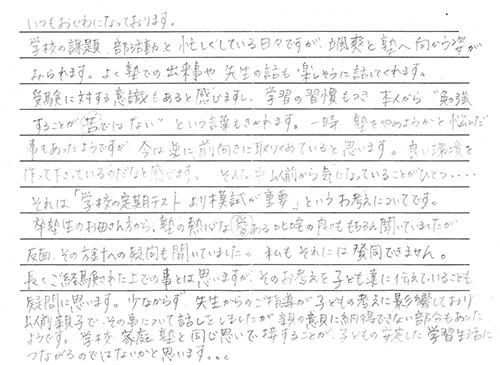 いつもおせわになっております。
学校の課題、部活動と忙しくしている日々ですが、颯爽と塾へ向かう姿が
みられます。よく塾での出来事や先生の話も楽しそうに話してくれます。
受験に対する意識もあると感じますし、学習の習慣もつき本人から"勉強
することが苦ではない"という言葉もきかれます。一時 塾をやめようかと悩んだ
事もあったようですが、今は逆に前向きに取りくめていると思います。良い環境を
作って下さっているのだなと感じます。そんな中以前から気になっていることがひとつ・・・・
それは「学校の定期テストより模試が重要」というお考えについてです。
卒塾生のお母さん方から、塾の熱心な愛ある叱咤の良さももちろん聞いていましたが
反面、その方針への疑問も聞いていました。私もそれには賛同できません。
長くご経験された上での事とは思いますが、そのお考えを子ども達に伝えていることも
疑問に思います。少なからず先生からのご指導が子どもの考えに影響しており
以前親子で、その事について話しをしましたが親の意見に納得できない部分もあった
ようです。学校 家庭 塾と同じ思いで接することが、子どもの安定した学習生活に
つながるのではないかと思います。。。